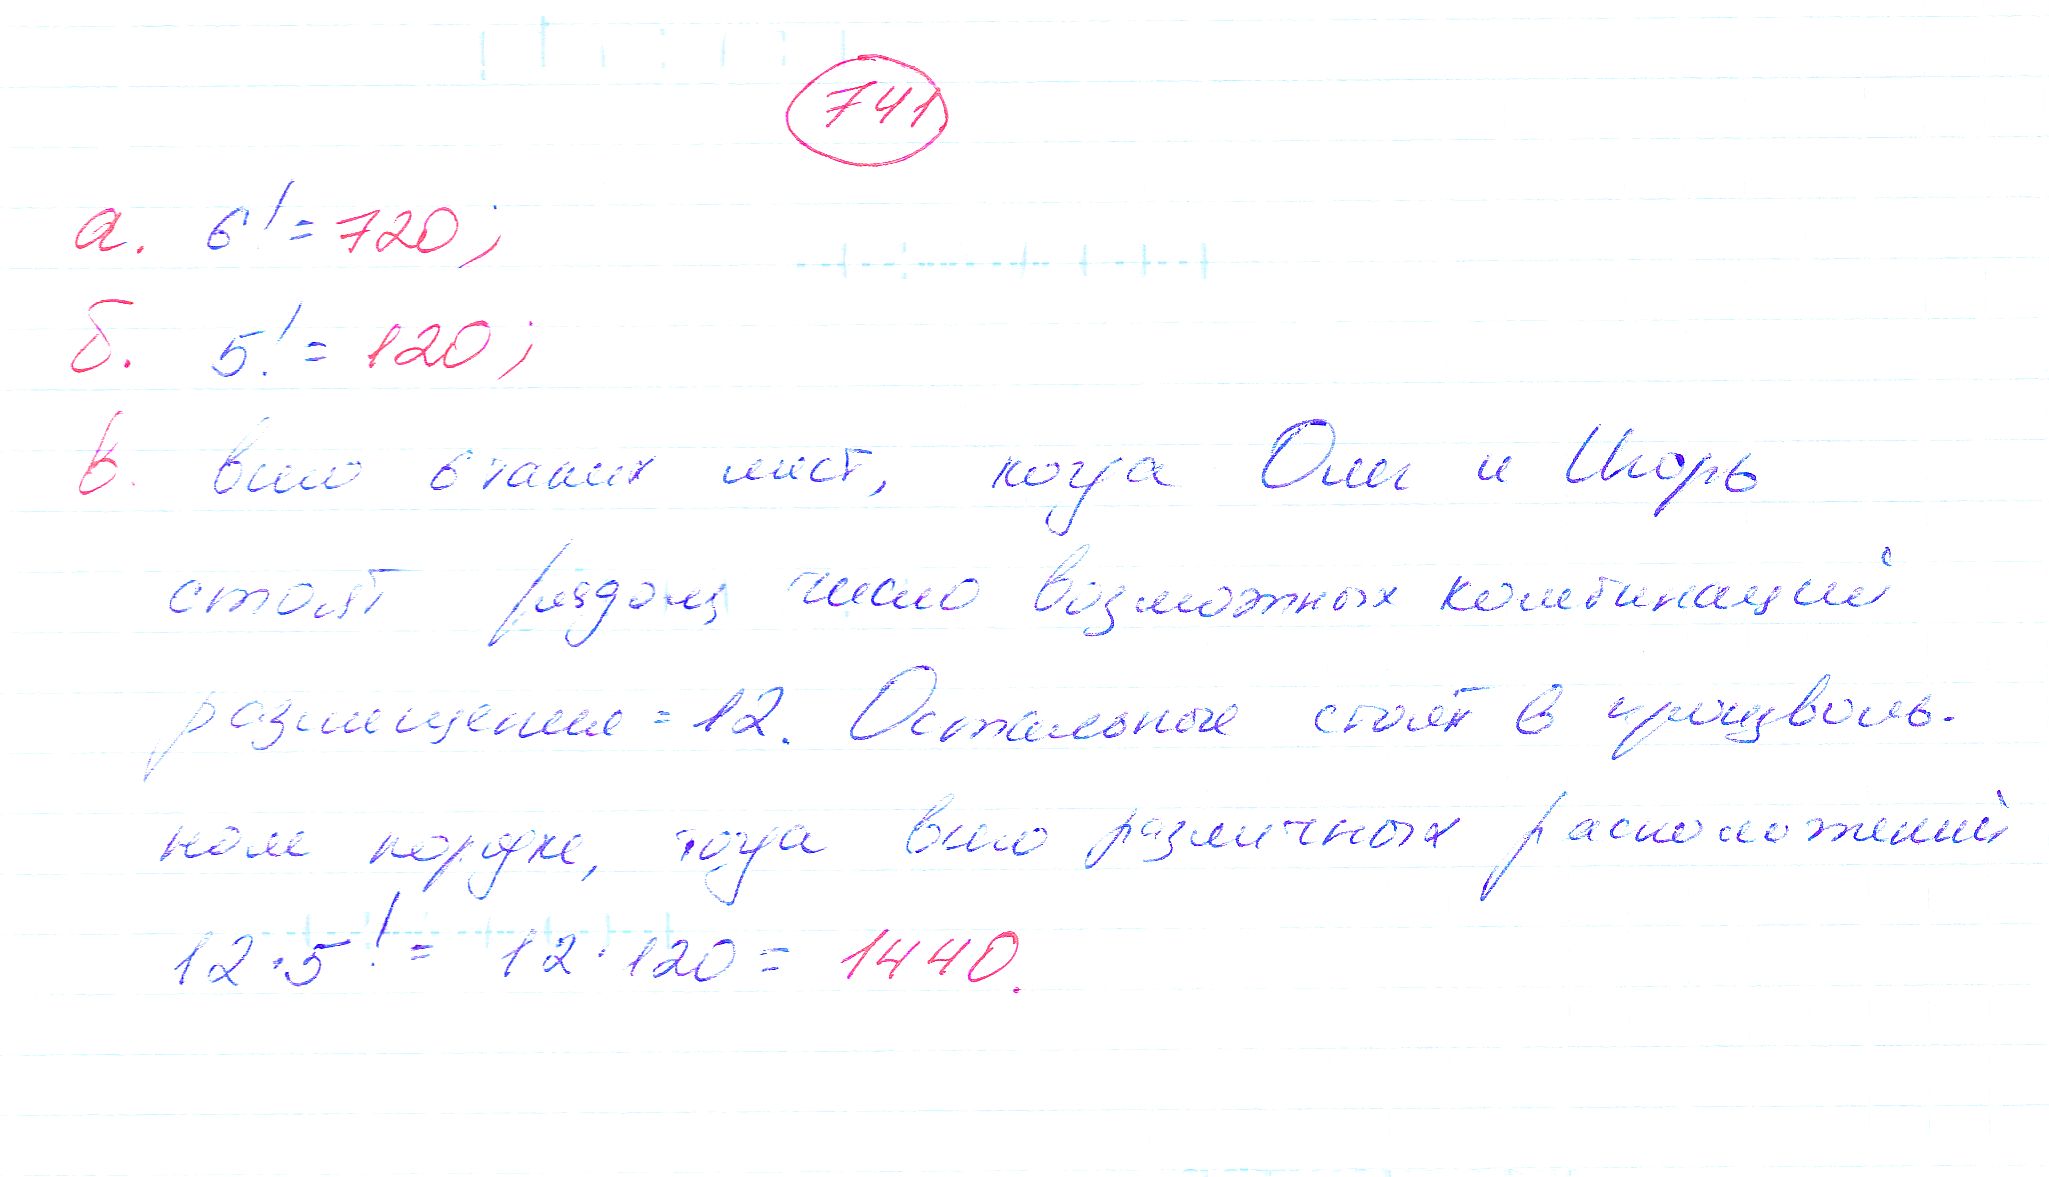 741
а. 6! = 720;
б. 5! = 120;
в. всего 6 таких мест, когда Олег и Игорь
стоят рядом, число возможных комбинаций
размещения = 12. Остальные стоят в произволь-
ном порядке, тогда всего различных расположений
12 · 5! = 12 · 120 = 1440.